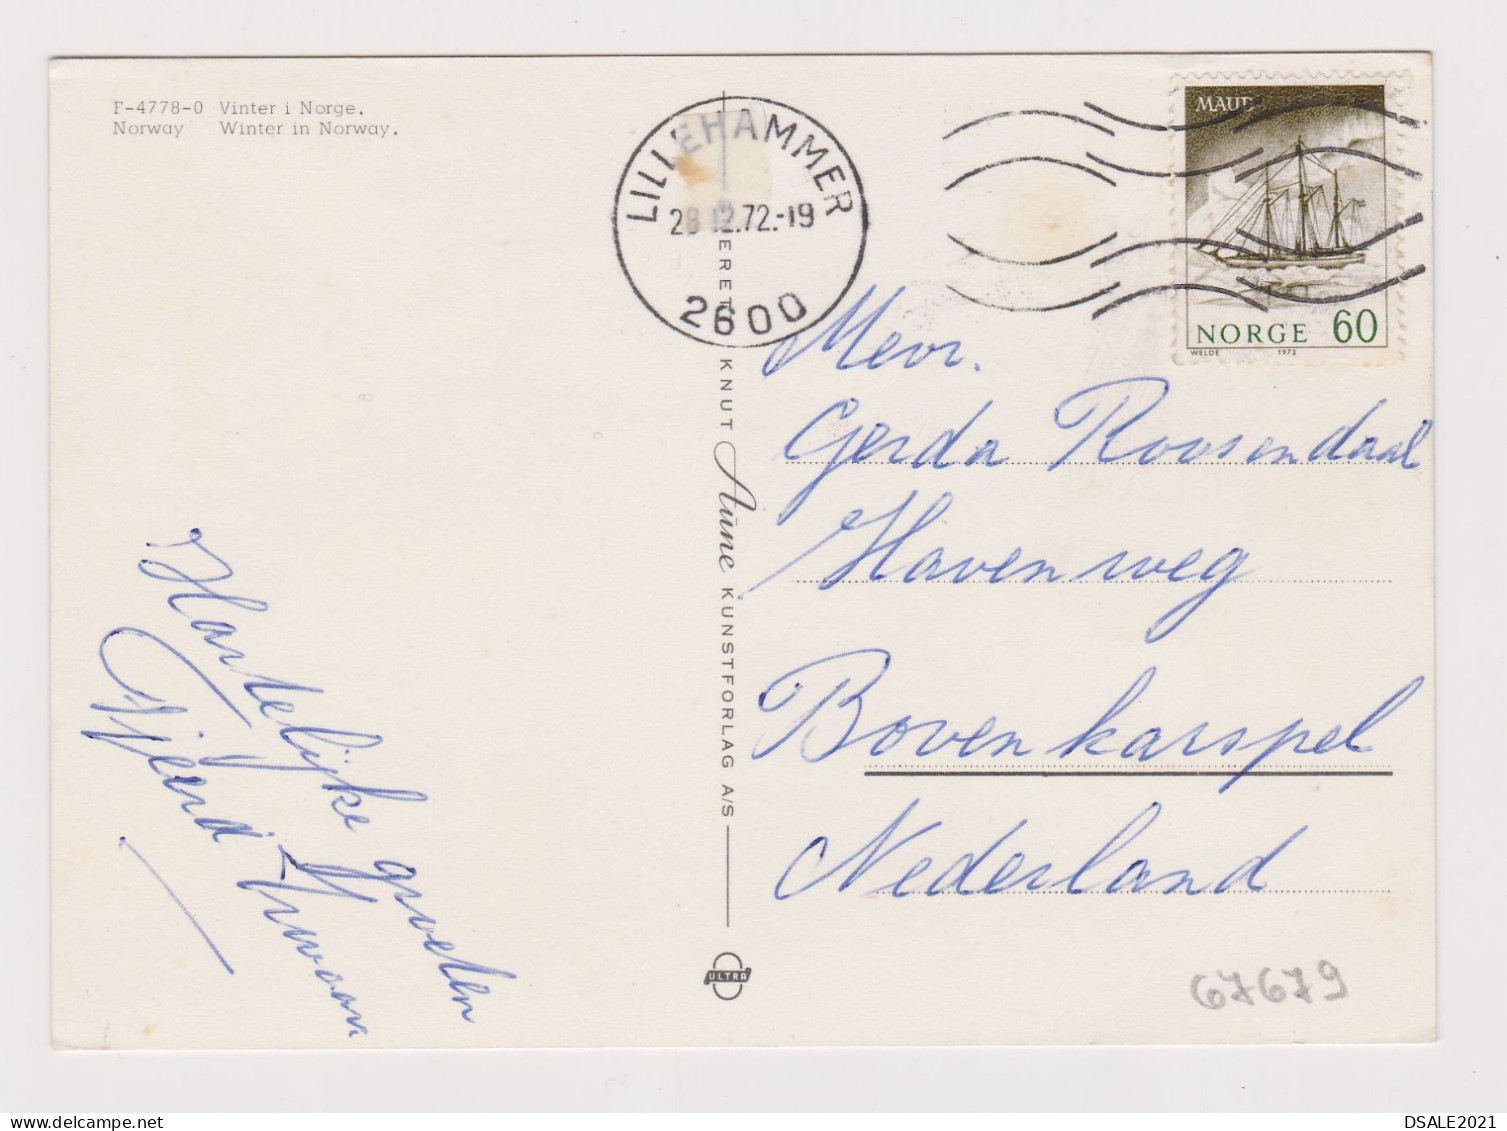 F-4778-0 Vinter i Norge.
Norway Winter in Norway.
LILLEHAMMER
28.12.72.-19
2600
MAUD
NORGE 60
WELDE 1972
ENERETT KNUT Aune KUNSTFORLAG A/S
ULTRA
Mevr.
Gerda Roosendaal
Havenweg
Bovenkarspel
Nederland
Hartelijke groeten
67679
DSALE2021